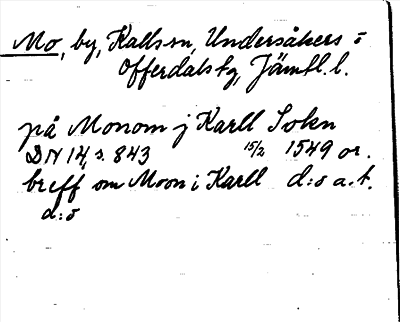 Mo, by, Kalls sn, Undersåkers o
Offerdals tg, Jämtl. l.
på Monom j Karll Sokn
DN 14, s. 843 15/2 1549 or.
breff om Moon i Karll d:o a.t.
d:o